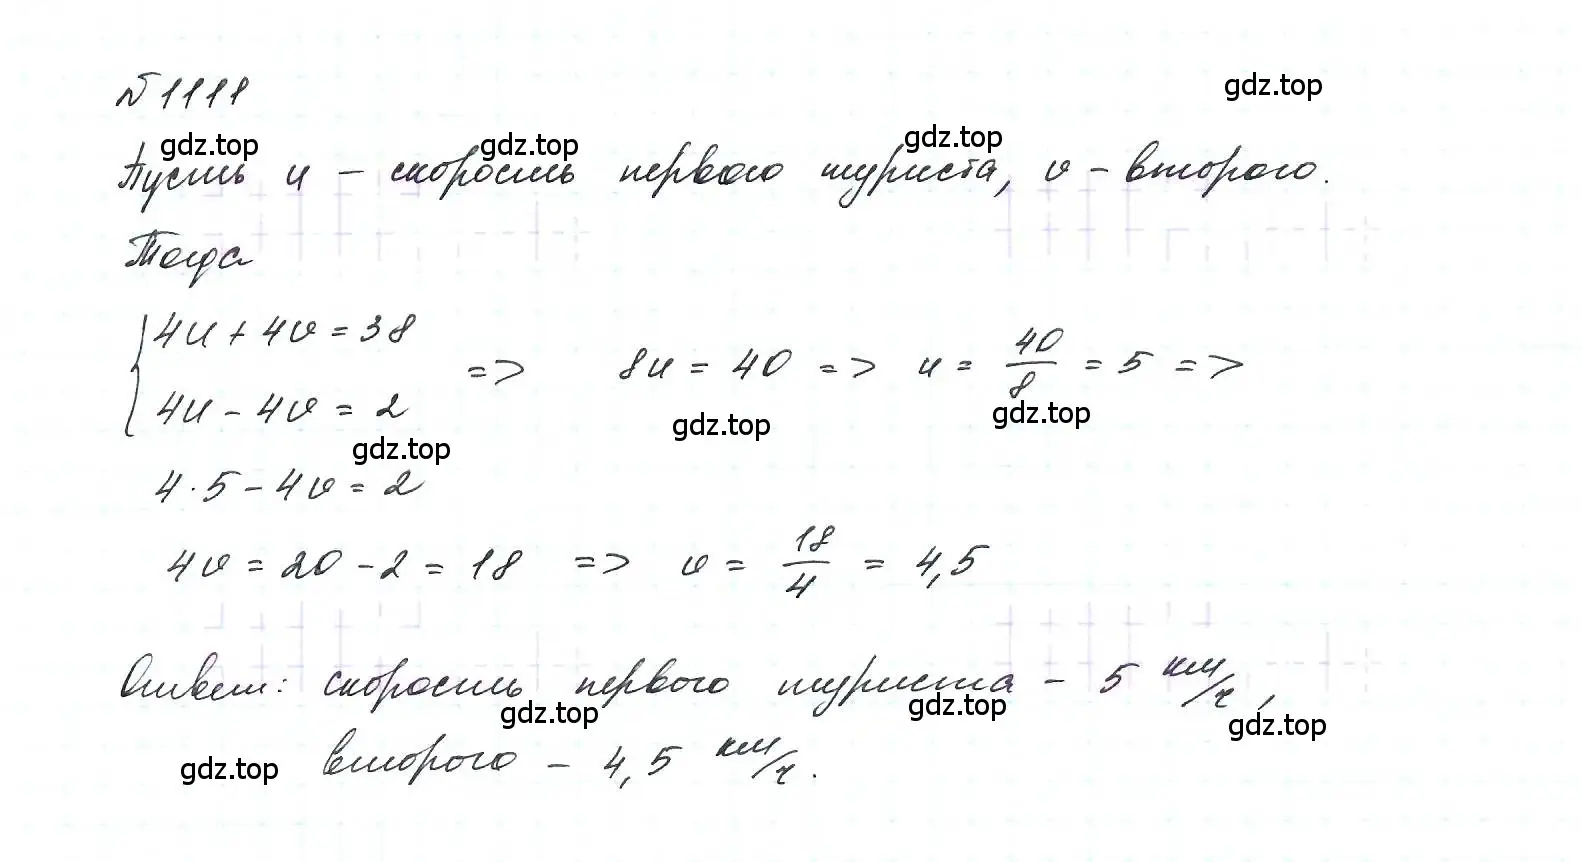 №1111
gdz.top
gdz.top gdz.top gdz.top
Пусть u – скорость первого туриста, v – второго.
Тогда
4u + 4v = 38
4u - 4v = 2
=> 8u = 40 => u = 40/8 = 5 =>
gdz.top gdz.top gdz.top
4·5 - 4v = 2
4v = 20 - 2 = 18 => v = 18/4 = 4,5
Ответ: скорость первого туриста – 5 км/ч,
gdz.top gdz.top gdz.top
второго – 4,5 км/ч.
gdz.top